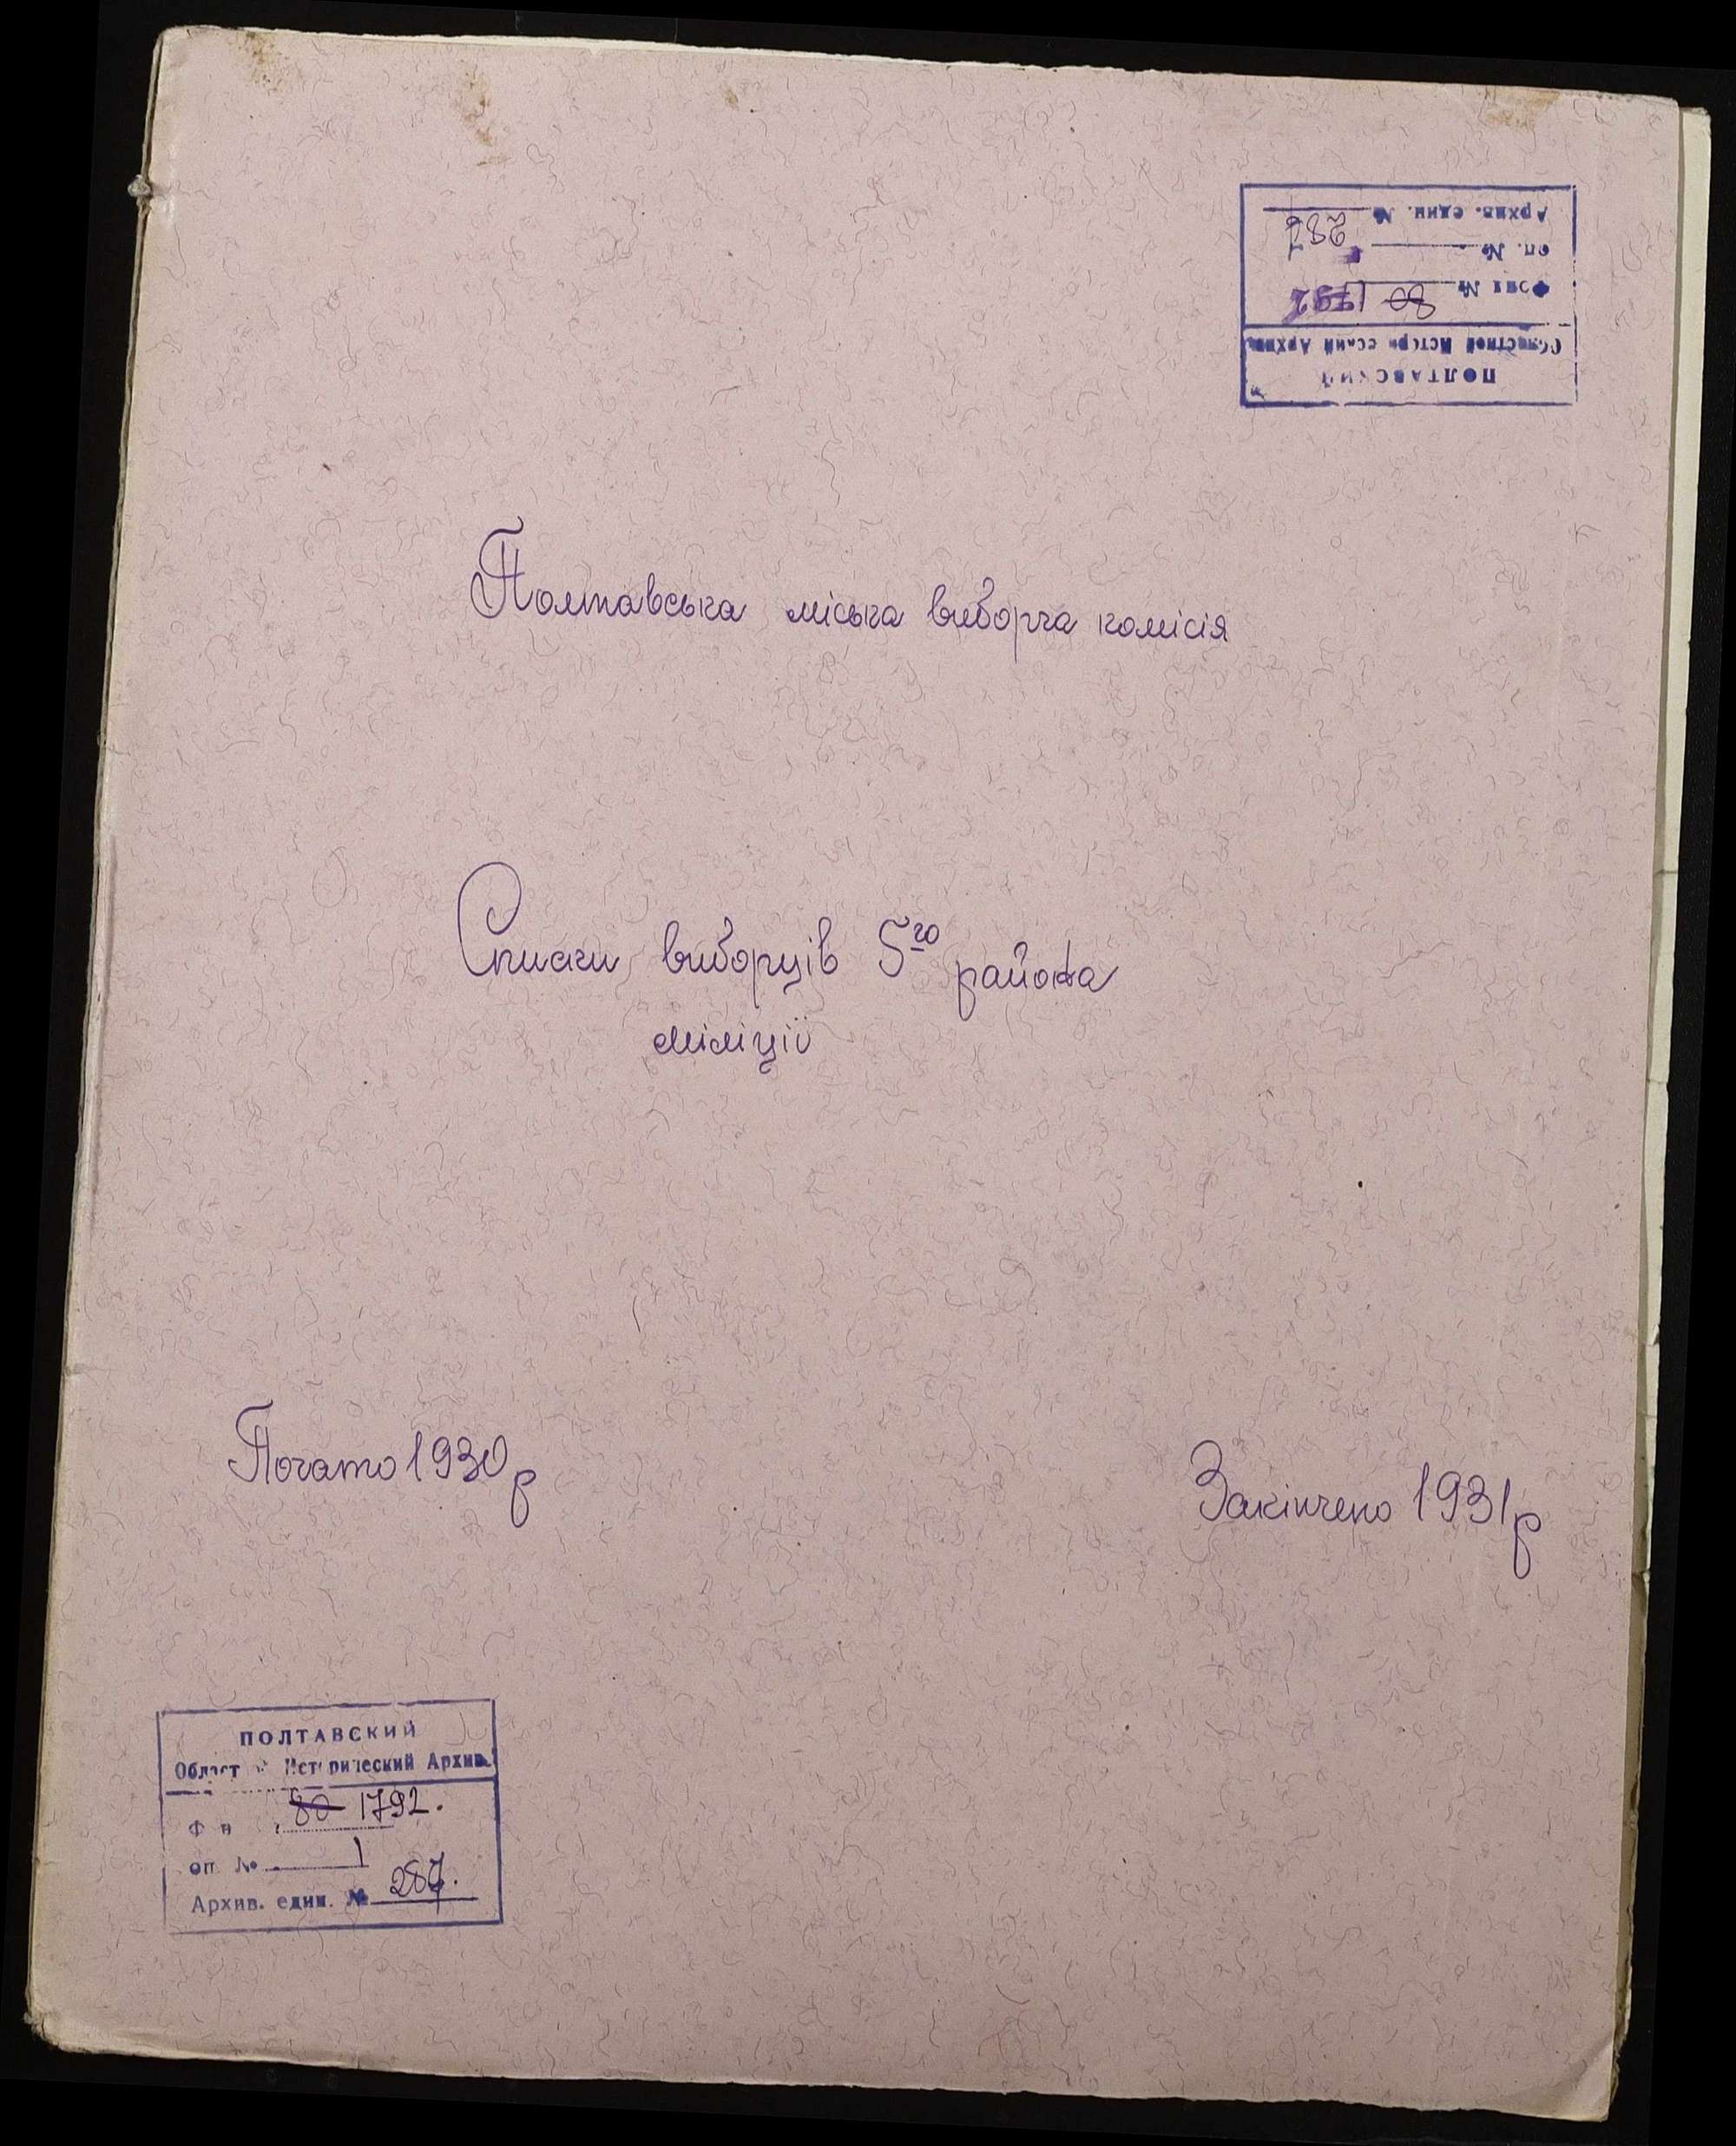 ПОЛТАВСКИЙ
Областной Исторический Архив
Фонд № 80 1792
оп. № 1
Архив. един. № 287
Полтавська міська виборча комісія
Списки виборців 5го района
міліції
Почато 1930 р
Закінчено 1931 р
ПОЛТАВСКИЙ
Областной Исторический Архив
Фонд 80 1792.
оп. № 1
Архив. един. № 287.